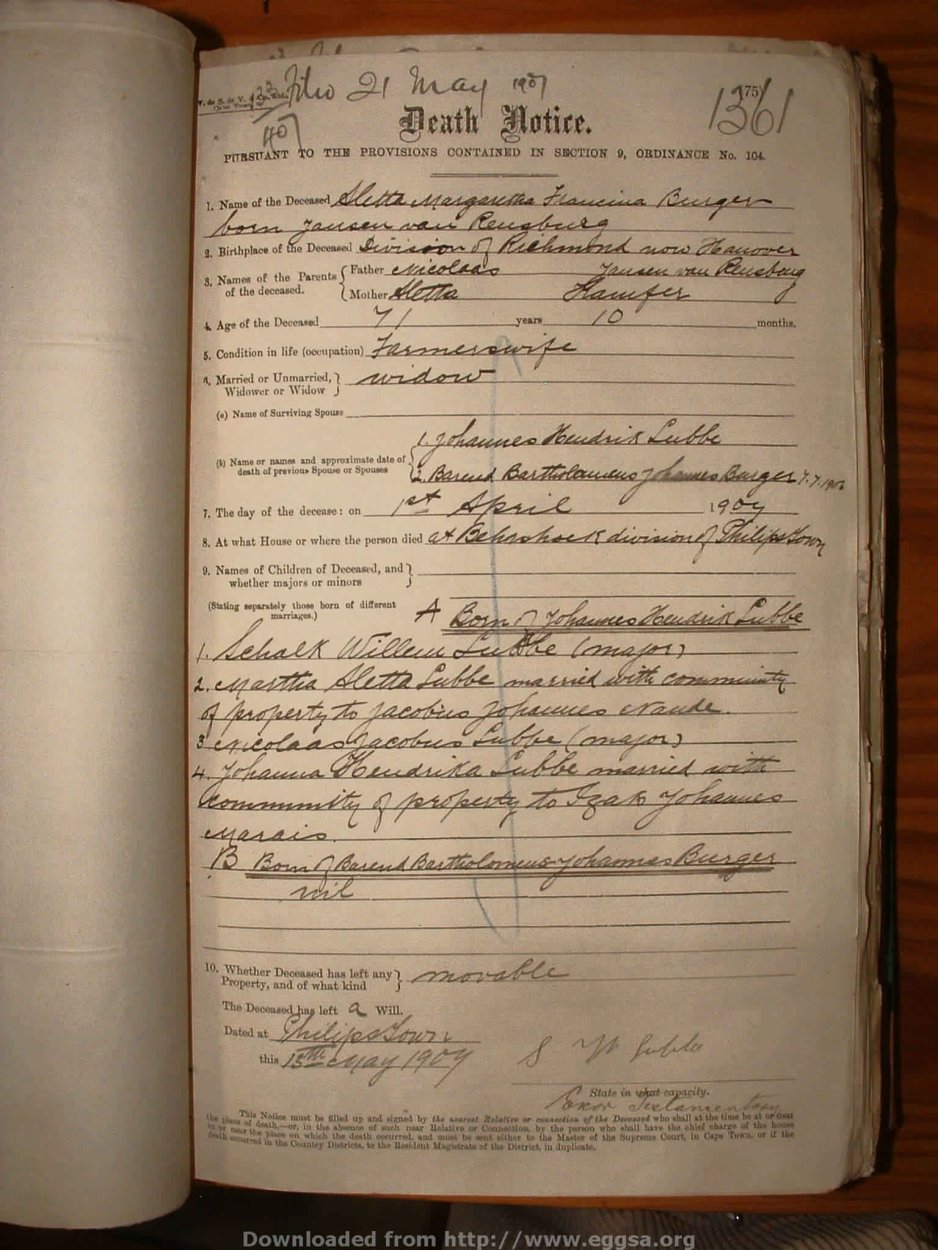 Filed 21 May 1907
1361
407
Death Notice.
PURSUANT TO THE PROVISIONS CONTAINED IN SECTION 9, ORDINANCE No. 104.
1. Name of the Deceased Aletta Margaretha Francina Burger
born Jansen van Rensburg
2. Birthplace of the Deceased Division of Richmond now Hanover
3. Names of the Parents of the deceased. Father Nicolaas Jansen van Rensburg
Mother Aletta Kamfer
4. Age of the Deceased 71 years 10 months.
5. Condition in life (occupation) Farmerswife
6. Married or Unmarried, Widower or Widow widow
(a) Name of Surviving Spouse
1. Johannes Hendrik Lubbe
(b) Name or names and approximate date of death of previous Spouse or Spouses
2. Barend Bartholomeus Johannes Burger 7.7.1902
7. The day of the decease: on 1st April 1907
8. At what House or where the person died at division of Philipstown
9. Names of Children of Deceased, and whether majors or minors
(Stating separately those born of different marriages.)
A Born of Johannes Hendrik Lubbe
1. Schalk Willem Lubbe (major)
2. Martha Aletta Lubbe married with community
of property to Jacobus Johannes Naude.
3 Nicolaas Jacobus Lubbe (major)
4. Johanna Hendrika Lubbe married with
community of property to Izak Johannes
Marais.
B Born of Barend Bartholomeus Johannes Burger
nil
10. Whether Deceased has left any Property, and of what kind movable
The Deceased has left a Will.
Dated at Philipstown
this 15th May 1907
S W Lubbe
State in what capacity.
Exor Testamentary
This Notice must be filled up and signed by the nearest Relative or connection of the Deceased who shall at the time be at or near
the place of death,—or, in the absence of such near Relative or Connection, by the person who shall have the chief charge of the house
in or near the place on which the death occurred, and must be sent either to the Master of the Supreme Court, in Cape Town, or if the
death occurred in the Country Districts, to the Resident Magistrate of the District, in duplicate.
Downloaded from http://www.eggsa.org